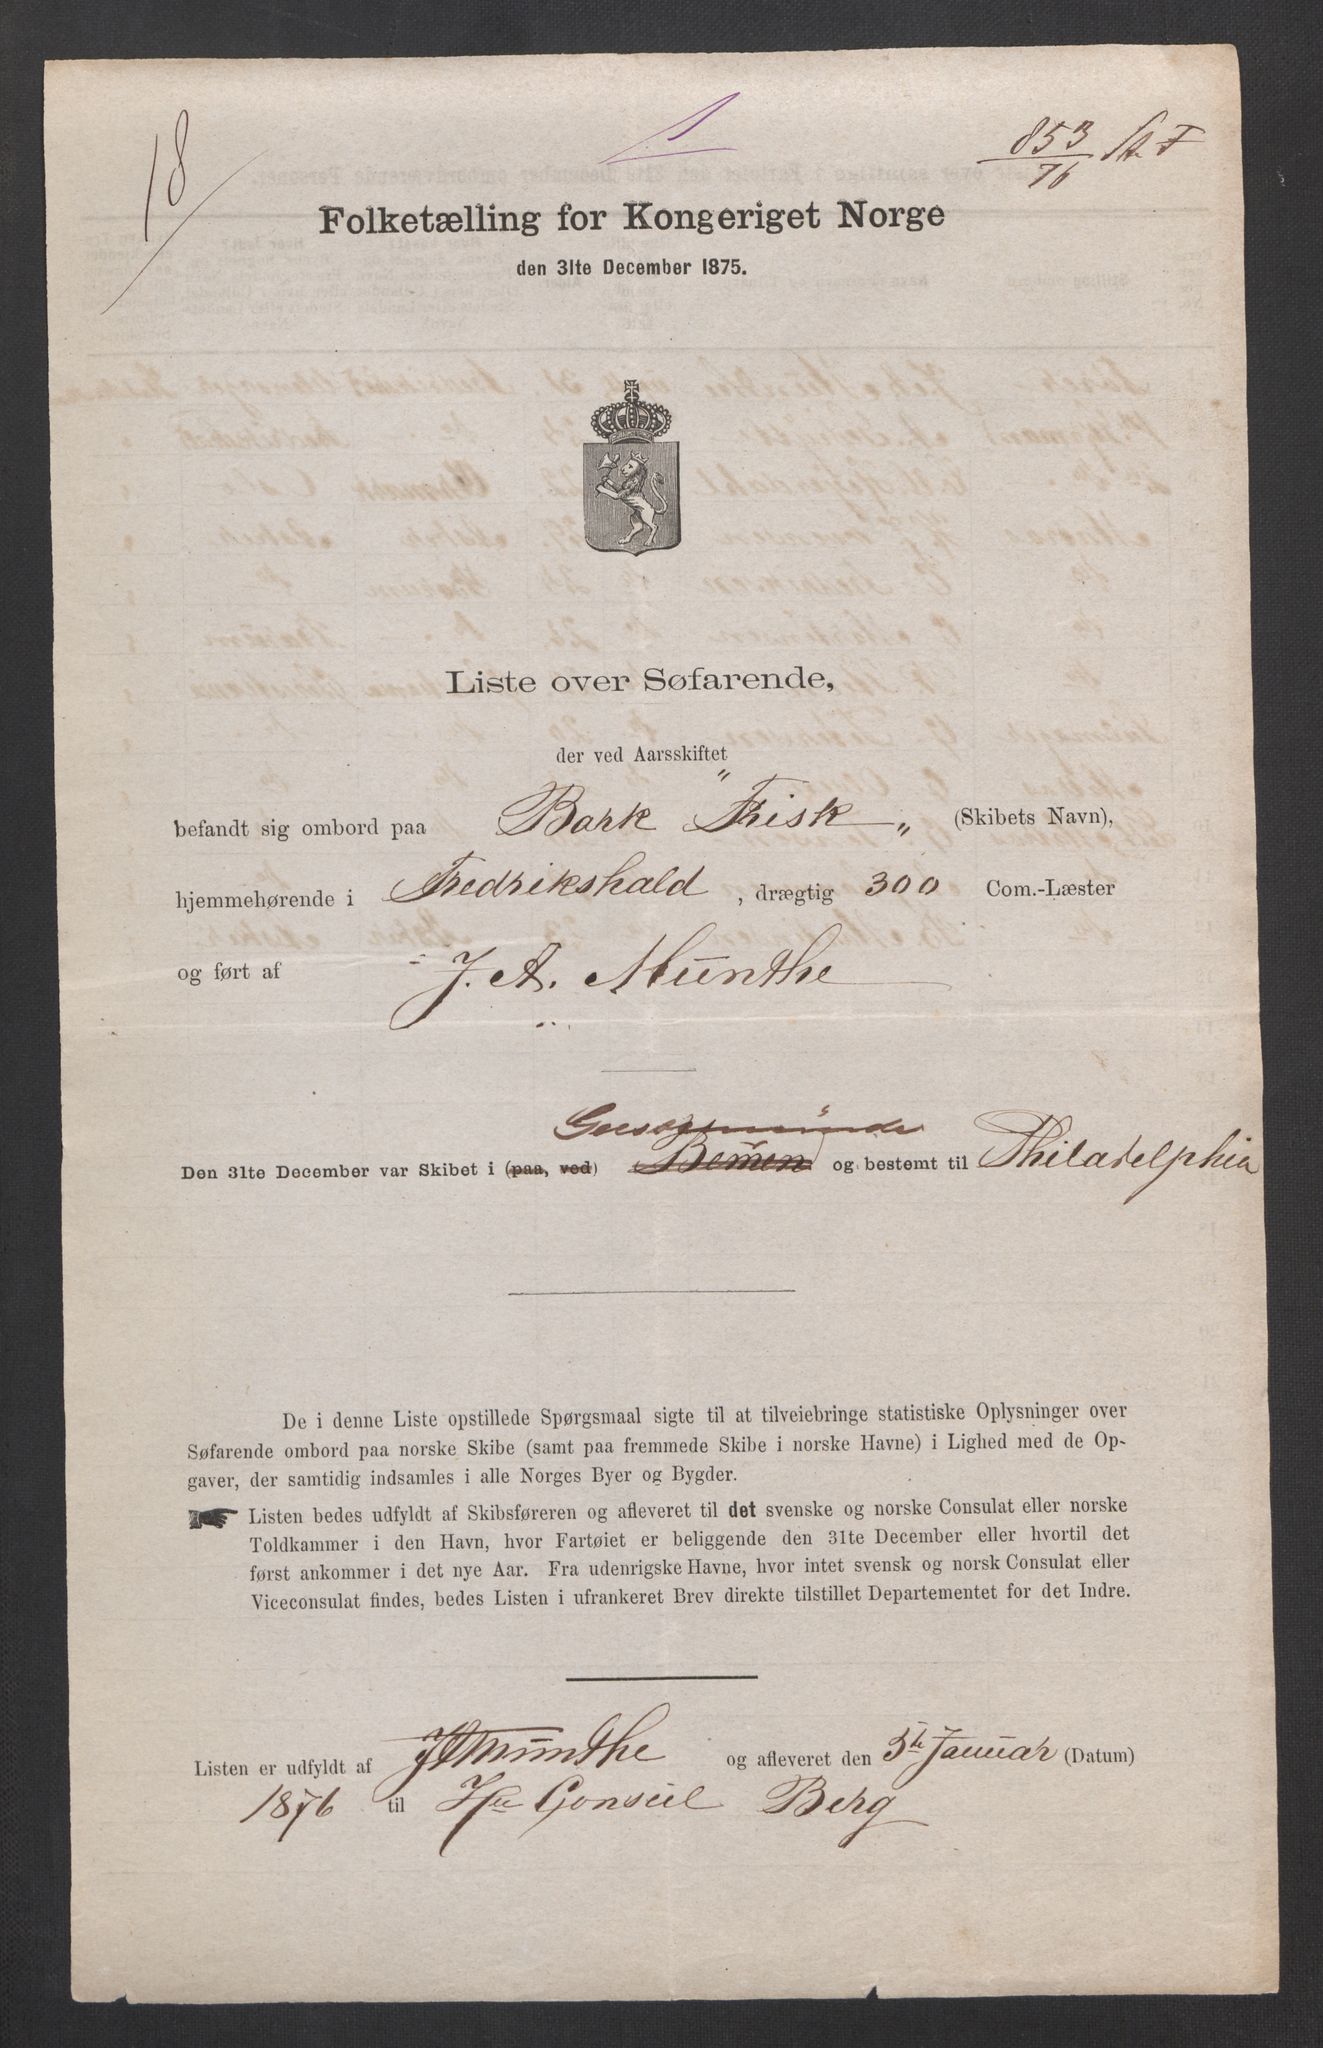 18
853
76
Folketælling for Kongeriget Norge
den 31te December 1875.
Liste over Søfarende,
der ved Aarsskiftet
befandt sig ombord paa Bark "Frisk„ (Skibets Navn),
hjemmehørende i Fredrikshald, drægtig 300 Com.-Læster
og ført af J. A. Munthe
Geestemünde
Den 31te December var Skibet i (paa, ved) Bemen og bestemt til Philadelphia
De i denne Liste opstillede Spørgsmaal sigte til at tilveiebringe statistiske Oplysninger over
Søfarende ombord paa norske Skibe (samt paa fremmede Skibe i norske Havne) i Lighed med de Op-
gaver, der samtidig indsamles i alle Norges Byer og Bygder.
Listen bedes udfyldt af Skibsføreren og afleveret til det svenske og norske Consulat eller norske
Toldkammer i den Havn, hvor Fartøiet er beliggende den 31te December eller hvortil det
først ankommer i det nye Aar. Fra udenrigske Havne, hvor intet svensk og norsk Consulat eller
Viceconsulat findes, bedes Listen i ufrankeret Brev direkte tilstillet Departementet for det Indre.
Listen er udfyldt af JAMunthe og afleveret den 5te Januar (Datum)
1876 til Hr Consul Berg